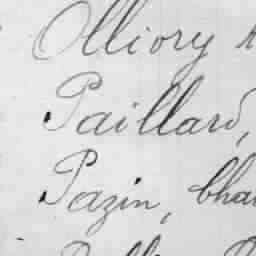 Olliory
Paillard,
Pazin, Cha